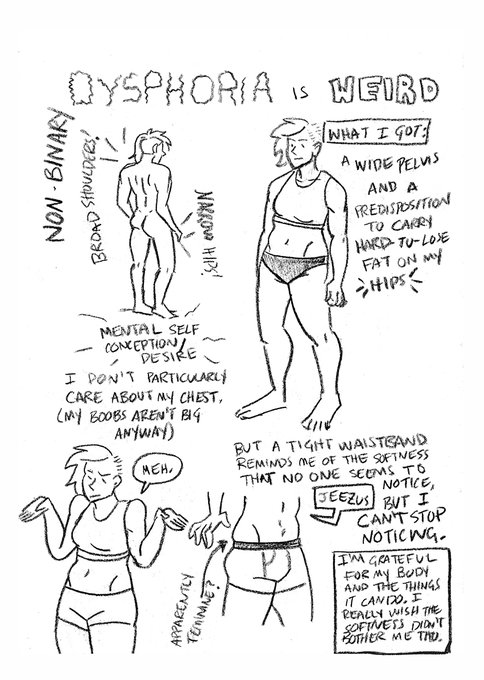 DYSPHORIA IS WEIRD
NON-BINARY
BROAD SHOULDERS!
NARROW HIPS!
MENTAL SELF
CONCEPTION/
DESIRE
WHAT I GOT:
A WIDE PELVIS
AND A
PREDISPOSITION
TO CARRY
HARD-TO-LOSE
FAT ON MY
HIPS
I DON'T PARTICULARLY
CARE ABOUT MY CHEST.
(MY BOOBS AREN'T BIG
ANYWAY)
MEH.
BUT A TIGHT WAISTBAND
REMINDS ME OF THE SOFTNESS
THAT NO ONE SEEMS TO
NOTICE,
BUT I
CAN'T STOP
NOTICING.
JEEZUS
APPARENTLY
FEMININE?
I'M GRATEFUL
FOR MY BODY
AND THE THINGS
IT CAN DO. I
REALLY WISH THE
SOFTNESS DIDN'T
BOTHER ME THO.